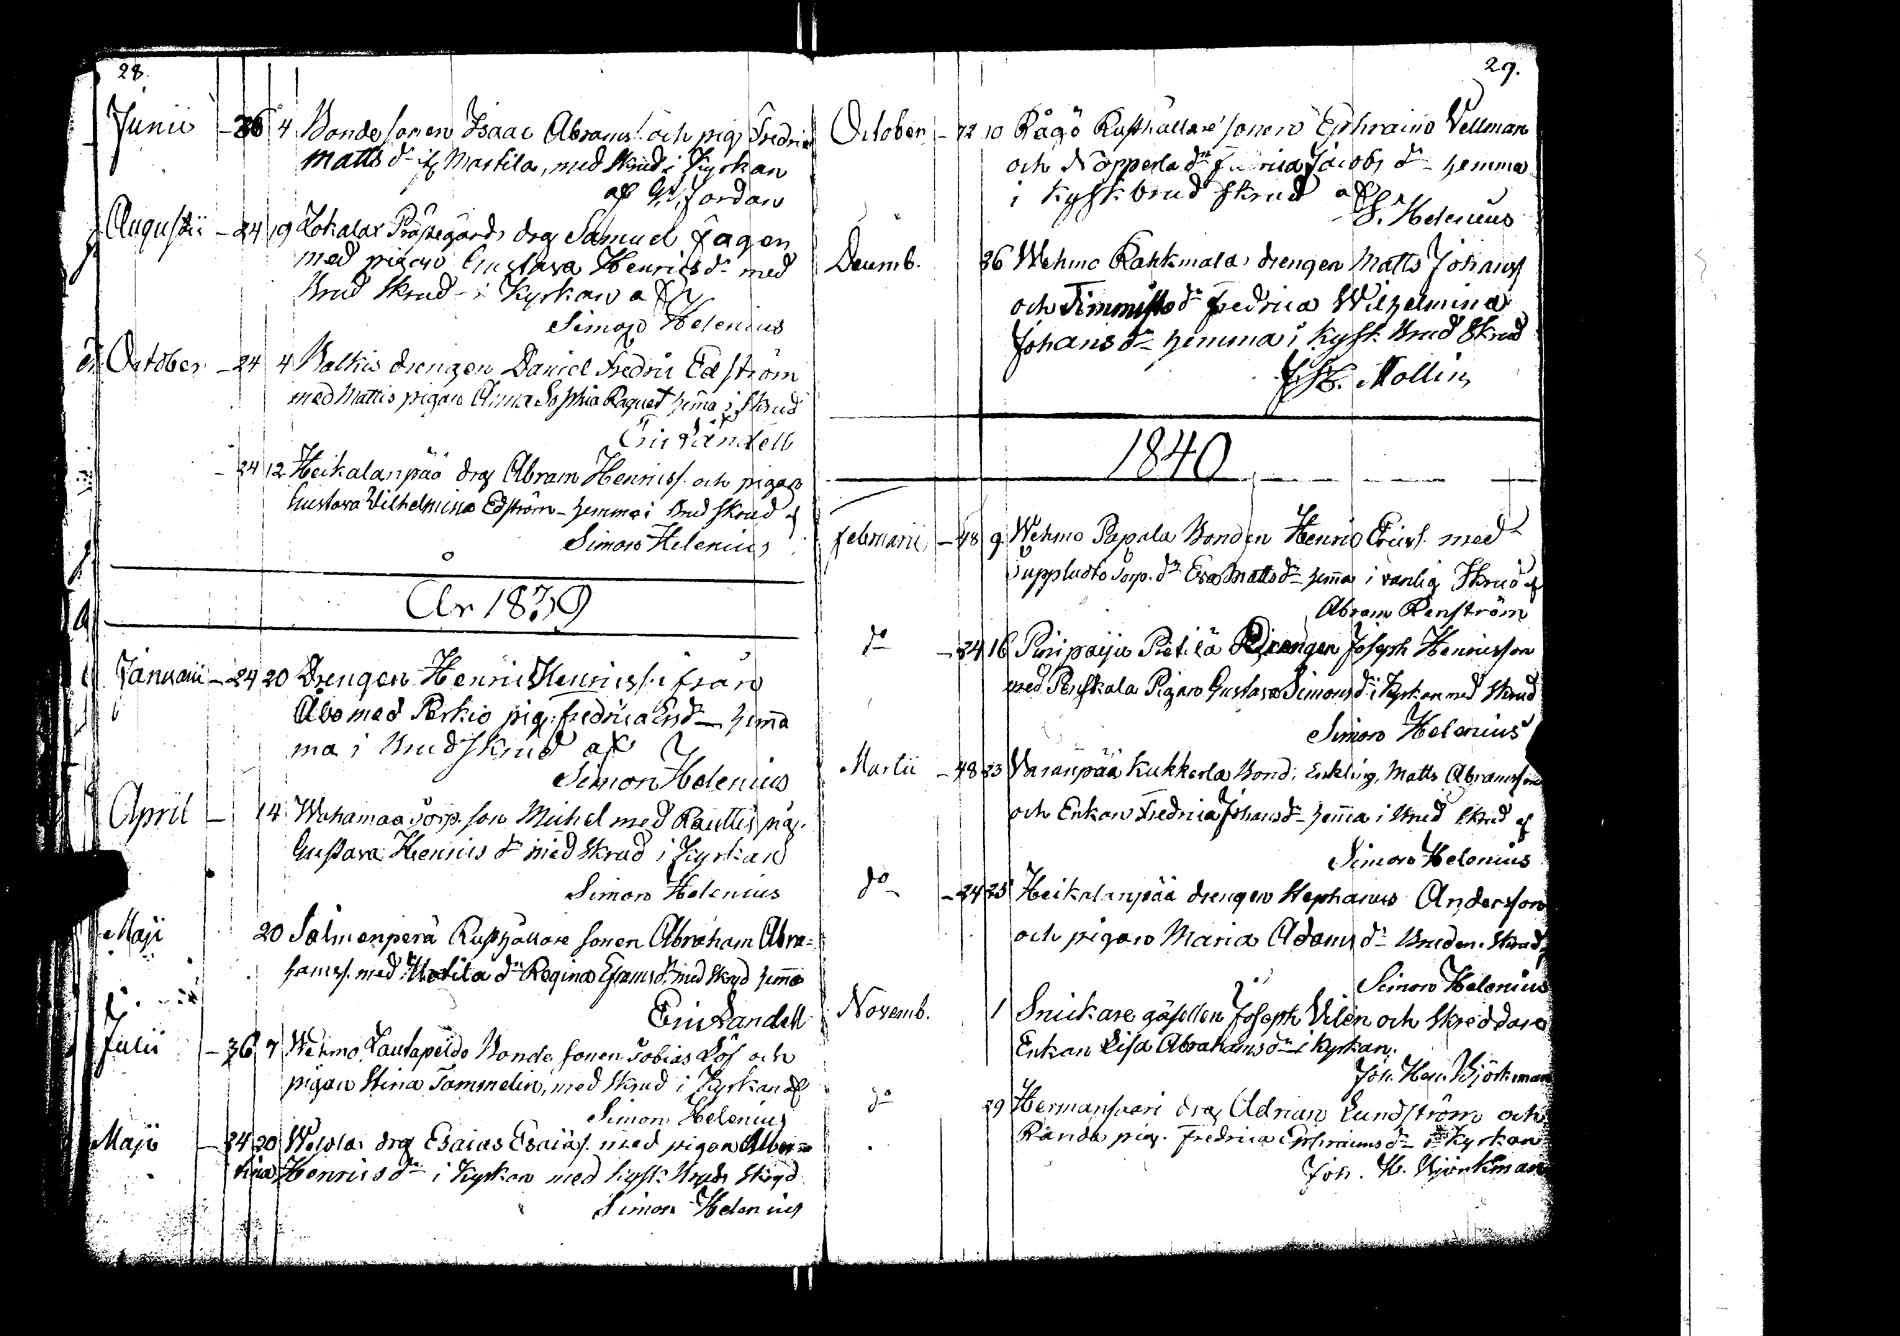 28.
Junii - 36 4 Bondesonen Isaac Abrams. och pig. Fredrica
Matts dr if Mastila, med Skrud i Kyrkan
af G. Jordan
Augustii - 24 19 Lokalax Prästegårds drg Samuel Fagen
med pigan Gustava Henrics dr med
Brud Skrud i Kyrkan af
Simon Helenius
October - 24 4 Balkis drengen Daniel Fredric Edström
med Mattis pigan Anna Sophia Raquet hema i Skrud
af
Eric Randell
- 24 12 Heikalanpää drg Abram Henrics. och pigan
Gustava Wilhelmina Edström - hemma i Brud Skrud af
Simon Helenius
År 1839
Januarii - 24 20 Drengen Henric Henricss. ifrån
Åbo med Perkio pig. Fredrica Ersdr - hema
ma i Brud Skrud af
Simon Helenius
April - 14 Wahamaa Sorp. son Michel med Rauttis pig.
Gustava Henrics dr med Skrud i Kyrkan
Simon Helenius
Maji 20 Salmenperä Rusthållare sonen Abraham Abra=
hamss. med Matila dr Regina Efraims dr med Skrud hema
Eric Randell
Julii - 36 7 Wehmo Lautapeldo Bonde sonen Tobias Löf och
pigan Stina Tammelin, med Skrud i Kyrkan af
Simon Helenius
Maji - 24 20 drg Esaias Esaiss. med pigan Alber=
tina Henrics dr i Kyrkan med Kyrk Bruds Skrud
Simon Helenius
29.
October - 72 10 Rågö Rusthållare sonen Ephraim Vellman
och Nopperla dr Fredrica Jacobs dr hemma
i Kyrk brud Skrud af
S. Helenius
Decemb. 26 Wehmo Rahkmala drengen Matts Johanss
och Timmisto dr Fredrica Wilhelmina
Johans dr hemma i Kyrk Brud Skrud
Mollin
1840
Februarii - 48 9 Wehmo Papala Bonden Henric Ericss. med
Suppluoto sorp. dr Eva Matts dr hema i vanlig Skrud af
Abram Renström
do - 24 16 Puripaiju Pietilä Drengen Joseph Henricsson
med Penskala Pigan Gustava Simons dr i Kyrkan med Skrud
Simon Helenius
Martii - 48 23 Varanpää Kukkerla Bond. Enkling. Matts Abramsson
och Enkan Fredrica Johans dr hema i Brud Skrud af
Simon Helenius
do - 24 25 Heikalanpää drengen Stephanus Andersson
och pigan Maria Adams dr Bruden i Skrud
Simon Helenius
Novemb. 1 Snickare gäsellen Joseph Vilén och Skreddare
Enkan Lisa Abrahams dr i Kyrkan.
Joh. Hen. Björkman
do 29 Hermansaari drg Adrian Lundström och
Randa pig. Fredrica Ephraims dr i Kyrkan
Joh. H. Björkman